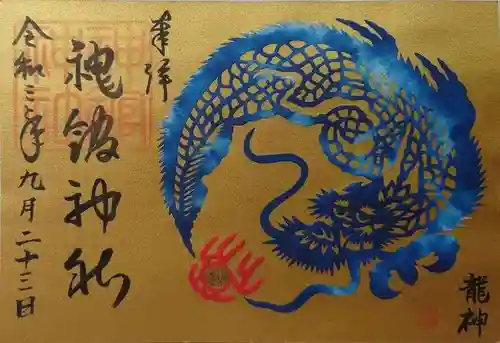 奉拝
神館神社
令和三年九月二十三日
龍神